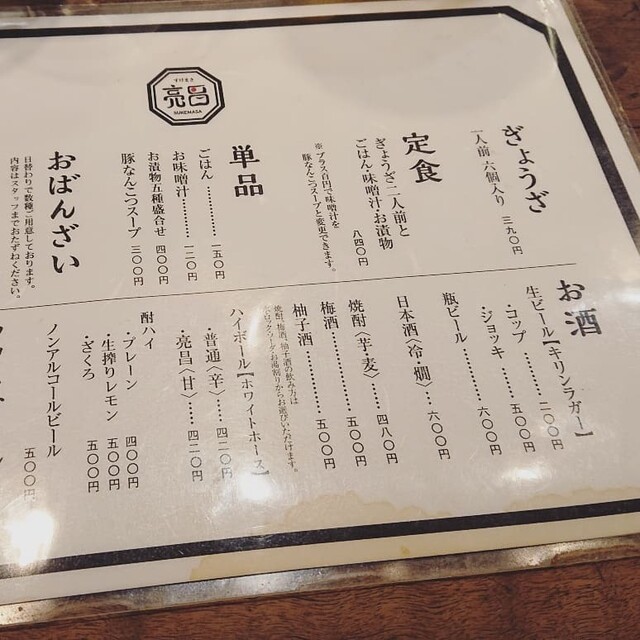 すけまさ
亮昌
SUKEMASA
ぎょうざ
一人前 六個入り 三九〇円
定食
ぎょうざ二人前と
ごはん・味噌汁・お漬物
八四〇円
※プラス百円で味噌汁を
豚なんこつスープと変更できます。
単品
ごはん…………一五〇円
お味噌汁………一二〇円
お漬物五種盛合せ 四〇〇円
豚なんこつスープ 三〇〇円
おばんざい
日替わりで数種ご用意しております。
内容はスタッフまでおたずねください。
お酒
生ビール【キリンラガー】
・コップ…………二〇〇円
・ジョッキ………五〇〇円
瓶ビール…………六〇〇円
日本酒〈冷・燗〉…六〇〇円
焼酎〈芋・麦〉……四八〇円
梅酒………………五〇〇円
柚子酒……………五〇〇円
焼酎、梅酒、柚子酒の飲み方は
ロック・ソーダ・お湯割りからお選びいただけます。
ハイボール【ホワイトホース】
・普通〈辛〉……四二〇円
・亮昌〈甘〉……四二〇円
酎ハイ
・プレーン 四〇〇円
・生搾りレモン 五〇〇円
・ざくろ 五〇〇円
ノンアルコールビール
五〇〇円